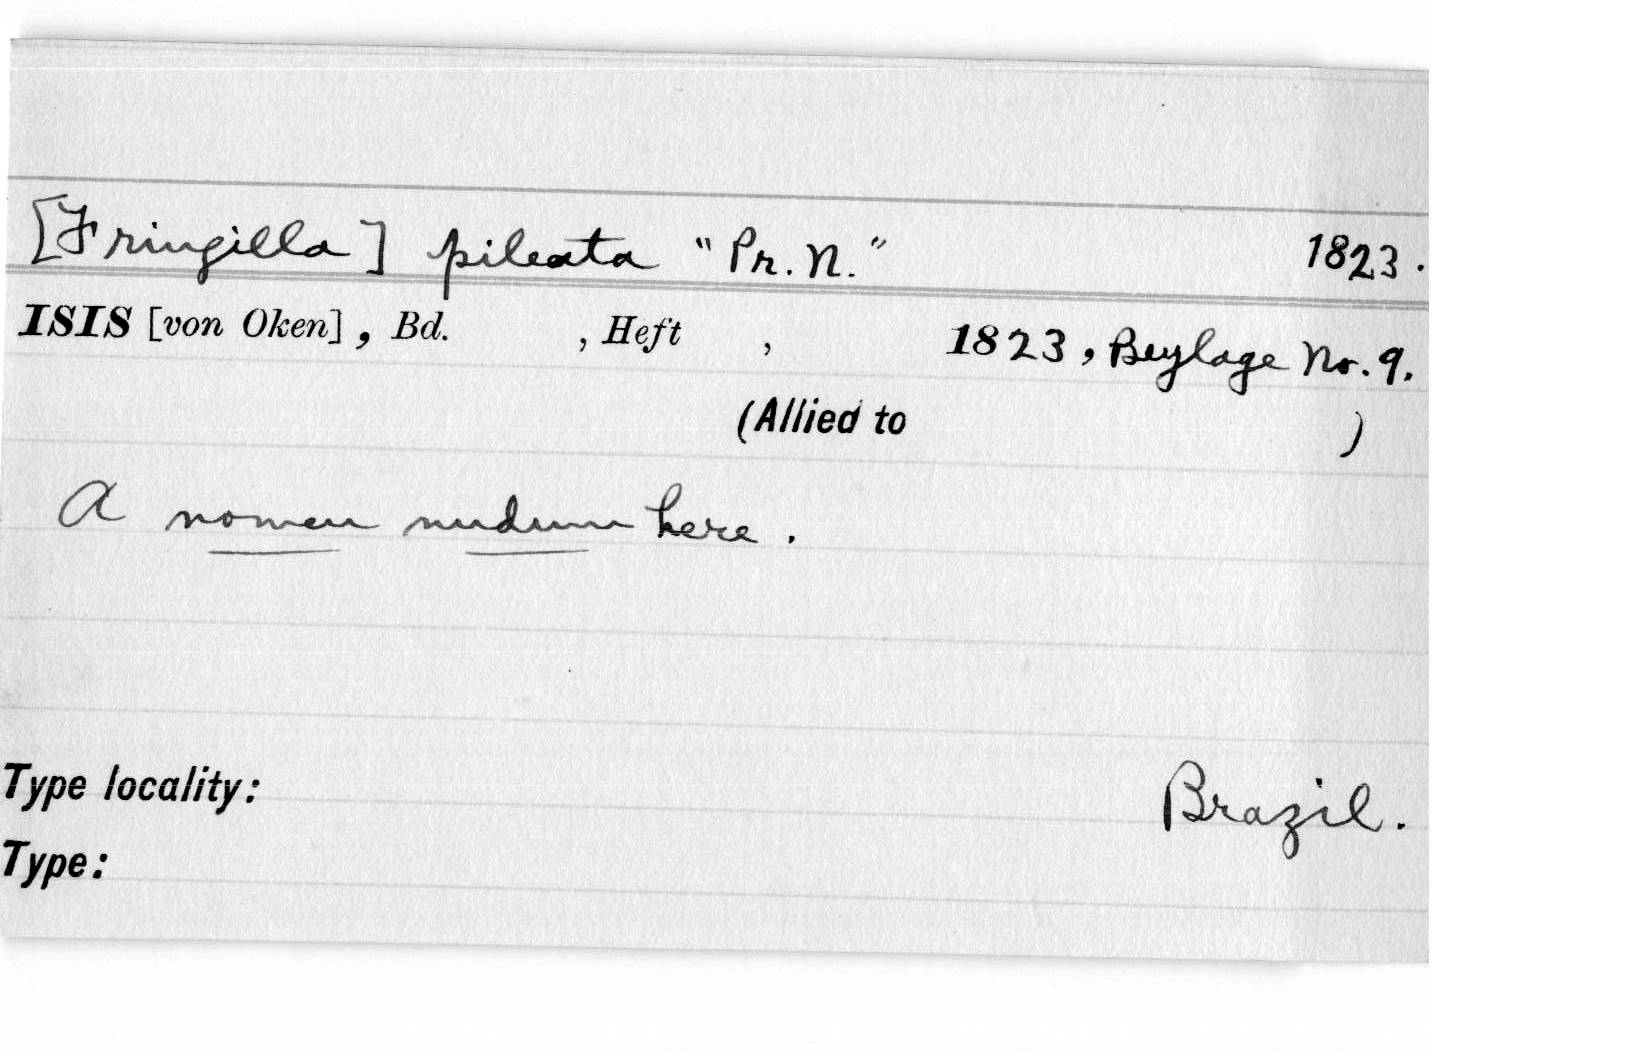 [Fringilla] pileata "Pr. N." 1823.
ISIS [von Oken], Bd. , Heft , 1823, Beylage No. 9.
(Allied to )
A nomen nudum here.
Type locality: Brazil.
Type: